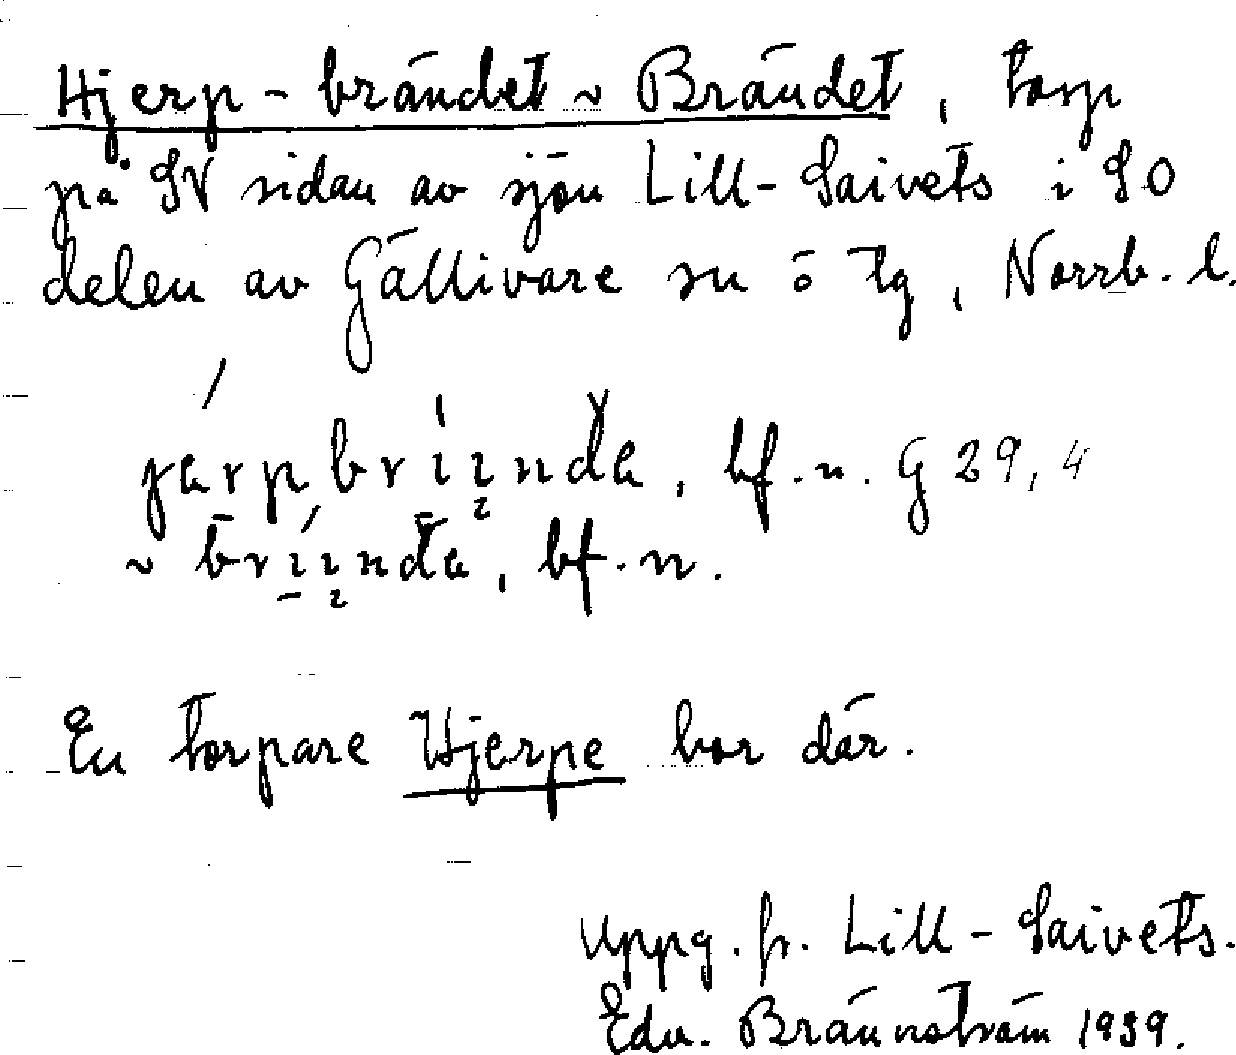 Hjerp-brändet ~ Brändet, torp
på SV sidan av sjön Lill-Saivets i SO
delen av Gällivare sn o tg, Norrb. l.
bf. n. G 29, 4
~ bf. n.
En torpare Hjerpe bor där.
Uppg. fr. Lill-Saivets.
Edv. Brännström 1939.